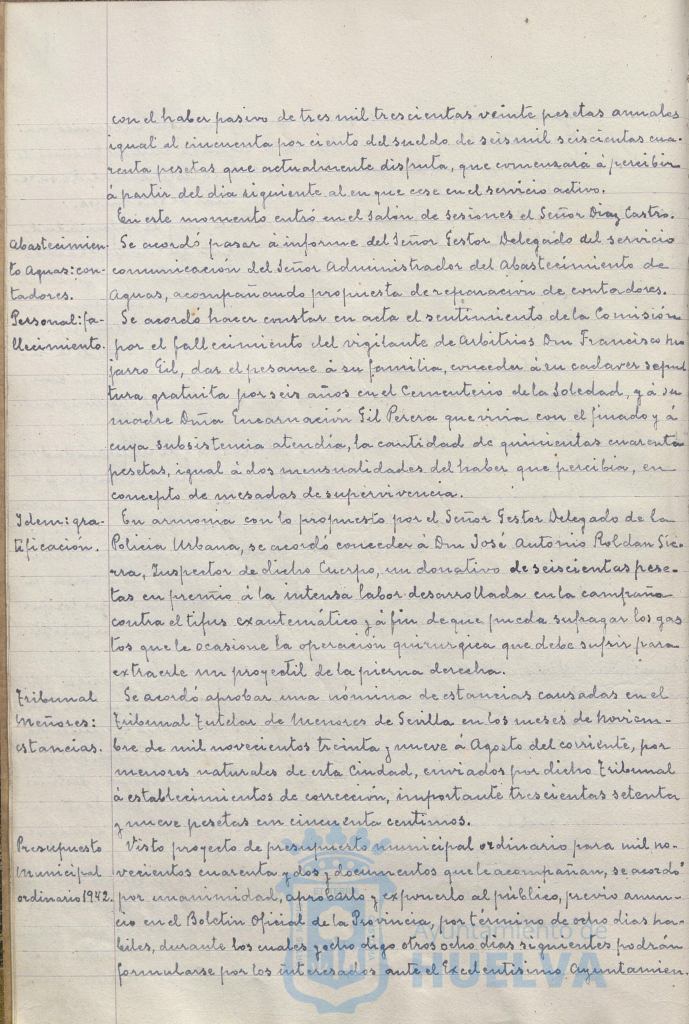 con el haber pasivo de tres mil trescientas veinte pesetas anuales
igual al cincuenta por ciento del sueldo de seis mil seiscientas cua-
renta pesetas que actualmente disfruta, que comenzará á percibir
á partir del dia siguiente al en que cese en el servicio activo.
En este momento entró en el Salón de Sesiones el Señor Diaz Castro.
Abastecimien-
to Aguas: con-
tadores.
Se acordó pasar á informe del Señor Gestor Delegado del servicio
comunicación del Señor Administrador del Abastecimiento de
Aguas, acompañando propuesta de reparación de contadores.
Personal: fa-
llecimiento.
Se acordó hacer constar en acta el sentimiento de la Comisión
por el fallecimiento del vigilante de Arbitrios Don Francisco
jarro Gil, dar el pesame á su familia, conceder á su cadaver sepul
tura gratuita por seis años en el Cementerio de la Soledad, y á su
madre Doña Encarnación Gil Perera que vivia con el finado y á
cuya subsistencia atendia, la cantidad de quinientas cuarenta
pesetas, igual á dos mensualidades del haber que percibia, en
concepto de mesadas de supervivencia.
Idem: gra-
tificación.
En armonia con lo propuesto por el Señor Gestor Delegado de la
Policia Urbana, se acordó conceder á Don José Antonio Roldan Sie-
rra, Inspector de dicho Cuerpo, un donativo de seiscientas pese-
tas en premio á la intensa labor desarrollada en la campaña
contra el tifus exantemático y á fin de que pueda sufragar los gas
tos que le ocasione la operación quirurgica que debe sufrir para
extraerle un proyectil de la pierna derecha.
Tribunal
Meñores:
estancias.
Se acordó aprobar una nómina de estancias causadas en el
Tribunal Tutelar de Menores de Sevilla en los meses de noviem-
bre de mil novecientos treinta y nueve á Agosto del corriente, por
menores naturales de esta Ciudad, enviados por dicho Tribunal
á establecimientos de corrección, importante trescientas setenta
y nueve pesetas con cincuenta centimos.
Presupuesto
Municipal
ordinario 1942.
Visto proyecto de presupuesto municipal ordinario para mil no-
vecientos cuarenta y dos y documentos que le acompañan, se acordó
por unanimidad, aprobarlo y exponerlo al público, previo anun-
cio en el Boletin Oficial de la Provincia, por término de ocho dias ha-
biles, durante los cuales y ocho digo otros ocho dias siguientes podrán
formularse por los interesados ante el Excelentisimo Ayuntamien-
Ayuntamiento de
HUELVA